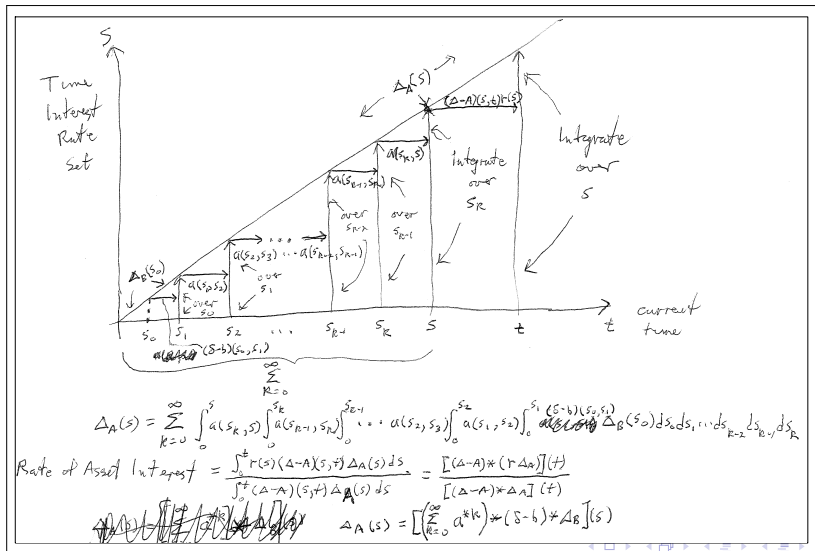 S
Time
Interest
Rate
Set
Δ_A(s)
(Δ-A)(s,t)r(s)
a(s_k,s)
a(s_{k-1},s_k)
Integrate
over
s
integrate
over
s_k
over
s_{k-2}
over
s_{k-1}
a(s_2,s_3) ... a(s_{k-2},s_{k-1})
over
s_1
Δ_B(s_0)
a(s_1,s_2)
over
s_0
s_0 s_1 s_2 ... s_{k-1} s_k s t
t current
time
(δ-b)(s_0,s_1)
∞
Σ
k=0
Δ_A(s) = Σ_{k=0}^∞ ∫_0^s a(s_k,s) ∫_0^{s_k} a(s_{k-1},s_k) ∫_0^{s_{k-1}} ... a(s_2,s_3) ∫_0^{s_2} a(s_1,s_2) ∫_0^{s_1} (δ-b)(s_0,s_1) Δ_B(s_0) ds_0 ds_1 ... ds_{k-2} ds_{k-1} ds_k
Rate of Asset Interest = ∫_0^t r(s)(Δ-A)(s,t) Δ_A(s) ds / ∫_0^t (Δ-A)(s,t) Δ_A(s) ds = [(Δ-A)*(rΔ_A)](t) / [(Δ-A)*Δ_A](t)
Δ_A(s) = [(Σ_{k=0}^∞ a^{*k})*(δ-b)*Δ_B](s)